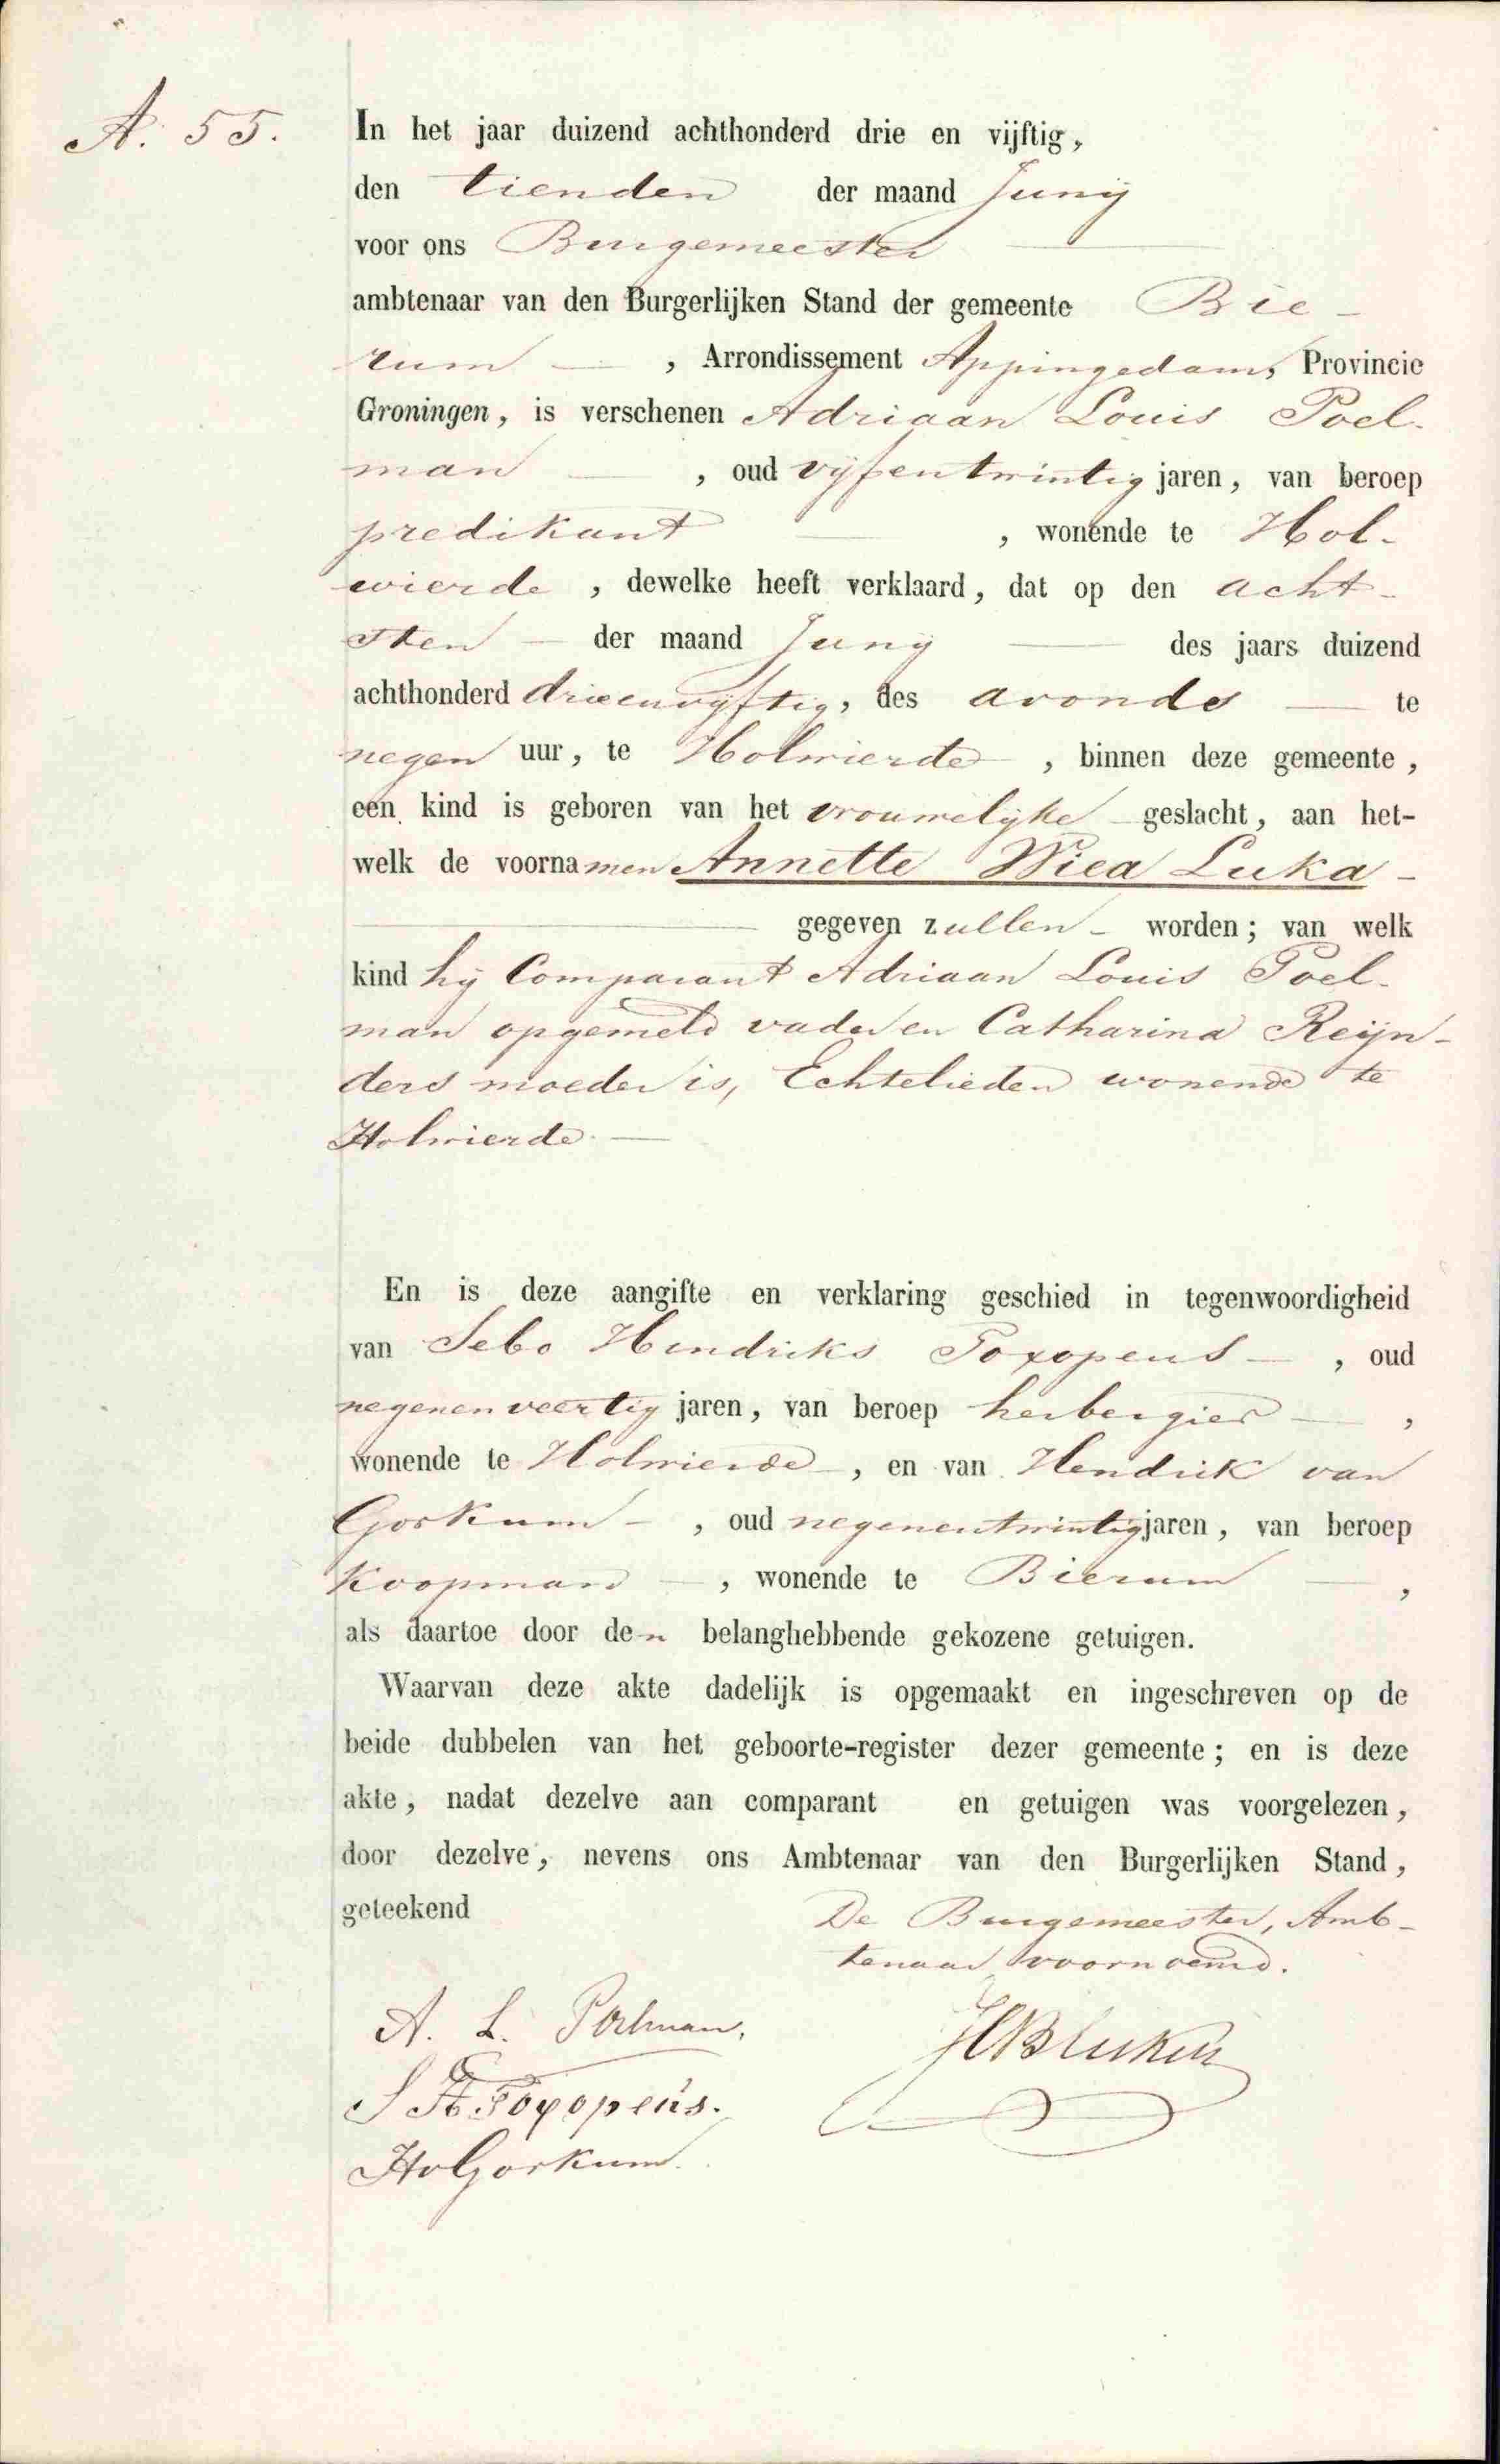 A. 55.
In het jaar duizend achthonderd drie en vijftig,
den tienden der maand Junij
voor ons Burgemeester
ambtenaar van den Burgerlijken Stand der gemeente Bie-
rum, Arrondissement Appingedam, Provincie
Groningen, is verschenen Adriaan Louis Poel-
man, oud vijfentwintig jaren, van beroep
predikant, wonende te Hol-
wierde, dewelke heeft verklaard, dat op den acht-
sten der maand Junij des jaars duizend
achthonderd drieenvijftig, des avonds te
negen uur, te Holwierde, binnen deze gemeente,
een kind is geboren van het vrouwelijke geslacht, aan het-
welk de voornamen Annette Wiea Luka
gegeven zullen worden; van welk
kind hij Comparant Adriaan Louis Poel-
man opgemeld vader en Catharina Reijn-
ders moeder is, Echtelieden wonende te
Holwierde.
En is deze aangifte en verklaring geschied in tegenwoordigheid
van Sebo Hendriks Toxopeus, oud
negenenveertig jaren, van beroep herbergier,
wonende te Holwierde, en van Hendrik van
Gorkum, oud negenentwintig jaren, van beroep
Koopman, wonende te Bierum,
als daartoe door den belanghebbende gekozene getuigen.
Waarvan deze akte dadelijk is opgemaakt en ingeschreven op de
beide dubbelen van het geboorte-register dezer gemeente; en is deze
akte, nadat dezelve aan comparant en getuigen was voorgelezen,
door dezelve, nevens ons Ambtenaar van den Burgerlijken Stand,
geteekend
De Burgemeester, Amb-
tenaar voornoemd.
A. L. Poelman.
S H Toxopeus.
HvGorkum.